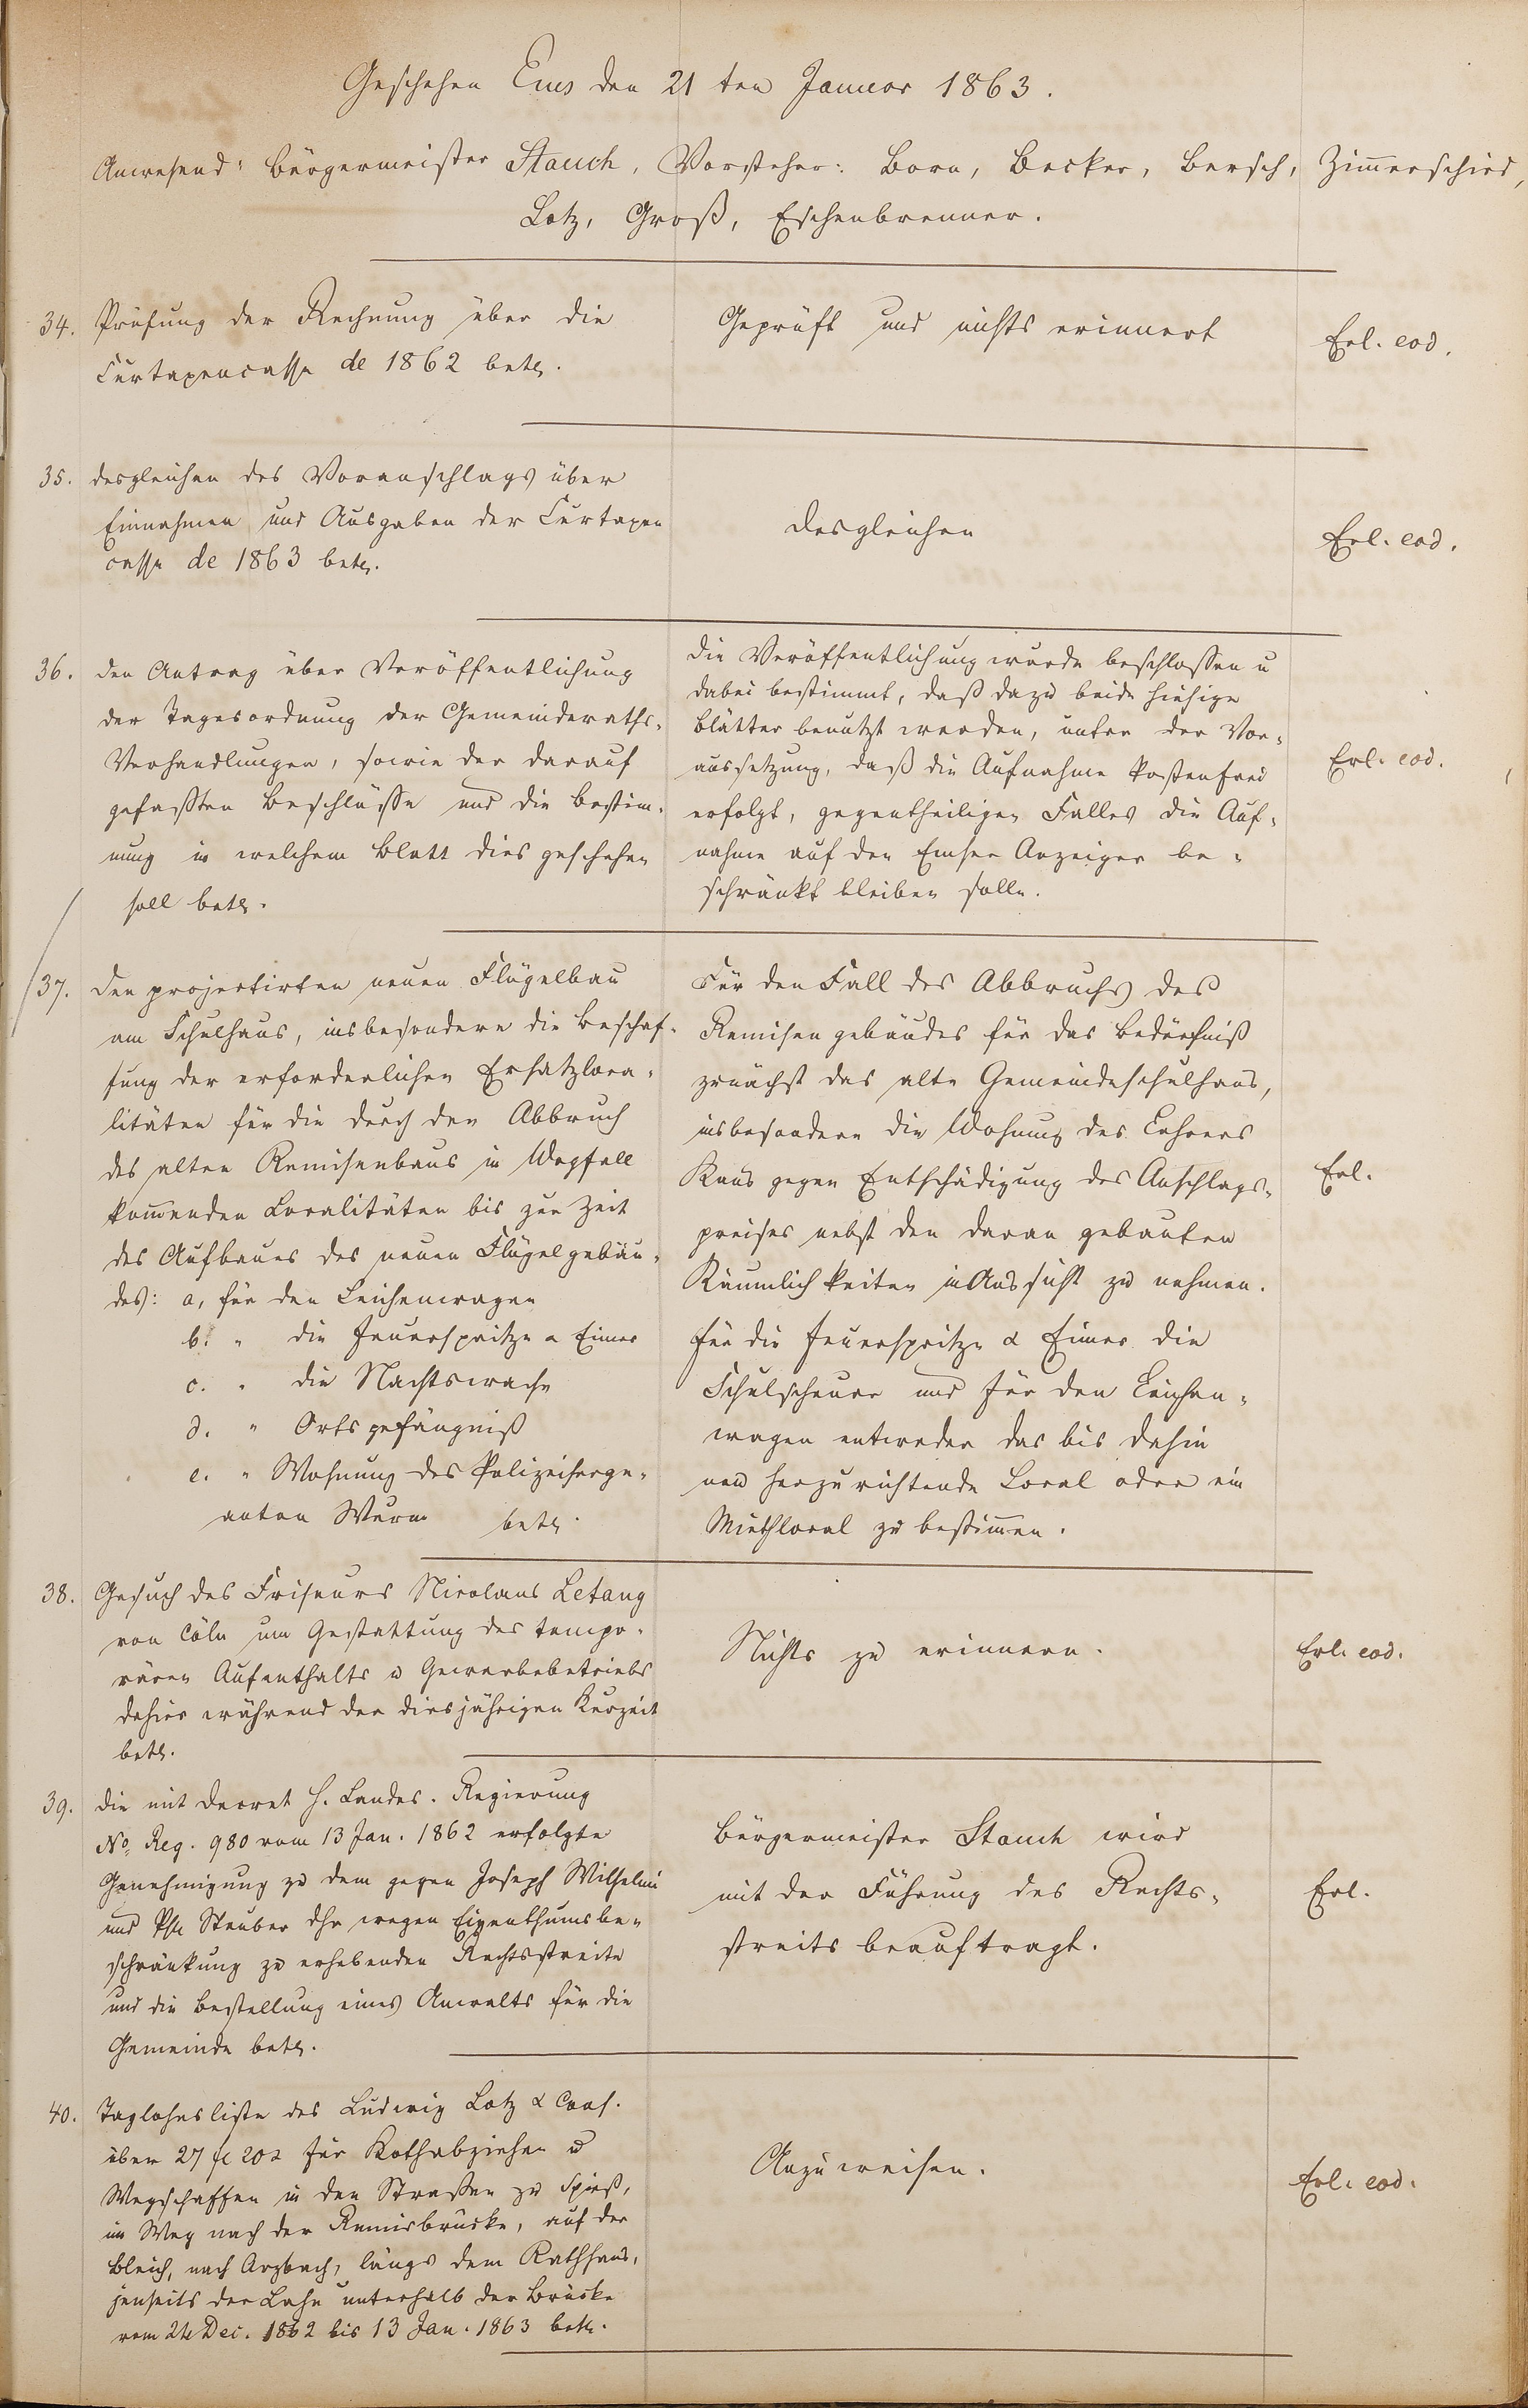 Geschehen Ems den 21 ten Januar 1863.
Anwesend: Bürgermeister Stauch, Vorsteher: Born, Becker, Bersch, Zimerschied,
Lotz, Groß, Eschenbrenner.
34. Prüfung der Rechnung über die
Curtaxencasse de 1862 betr.
Geprüft und nichts erinnert
Erl. eod.
35. desgleichen des Voranschlags über
Einnahmen und Ausgaben der Curtaxen
casse de 1863 betr.
desgleichen
Erl. eod.
36. den Antrag über Veröffentlichung
der Tagesordnung der Gemeinderaths-
Verhandlungen, sowie der darauf
gefaßten Beschlüsse und die Bestim-
mung in welchem Blatt dies geschehen
soll betr.
die Veröffentlichung wurde beschlossen u
dabei bestimmt, daß dazu beide hiesige
Blätter benutzt werden, unter der Vor-
aussetzung, daß die Aufnahme kostenfrei
erfolgt, gegentheiligen Falles die Auf-
nahme auf den Emser Anzeiger be-
schränkt bleiben solle.
Erl. eod.
37. den projectirten neuen Flügelbau
am Schulhaus, insbesondere die Beschaf-
fung der erforderlichen Ersatzloca-
litäten für die durch den Abbruch
des alten Remisenbaus in Wegfall
komenden Localitäten bis zur Zeit
des Aufbaues des neuen Flügelgebäu-
des: a, für den Leichenwagen
b. " die Feuerspritze & Eimer
c. " die Nachtswache
d. " Ortsgefängniß
e. " Wohnung des Polizeiserge-
anten Wurm betr.
Für den Fall des Abbruchs des
Remisengebäudes für das Bedürfniß
zunächst das alte Gemeindeschulhaus,
insbesondere die Wohnung des Lehrers
Kaus gegen Entschädigung des Anschlags-
preises nebst den daran gebauten
Räumlichkeiten in Aussicht zu nehmen.
für die Feuerspritze & Eimer die
Schulscheuer und für den Leichen-
wagen entweder das bis dahin
neu herzurichtende Local oder ein
Miethlocal zu bestimen.
Erl.
38. Gesuch des Friseurs Nicolaus Letang
von Cöln um Gestattung des tempo-
rären Aufenthalts u Gewerbebetriebs
dahier während der diesjährigen Kurzeit
betr.
Nichts zu erinnern.
Erl. eod.
39. die mit Decret H. Landes-Regierung
No. Reg. 980 vom 13 Jan. 1862 erfolgte
Genehmigung zu dem gegen Joseph Wilhelmi
und Steuber dhr wegen Eigenthumsbe-
schränkung zu erhebenden Rechtsstreite
und die Bestellung eines Anwalts für die
Gemeinde betr.
Bürgermeister Stauch wird
mit der Führung des Rechts-
streits beauftragt.
Erl.
40. Taglohnsliste des Ludwig Lotz & Cons.
über 27 fl 20 x für Kothabziehen u
Wegschaffen in den Straßen zu Spieß,
im Weg nach der Remisbrücke, auf der
Bleich, nach Arzbach, längs dem Rathhaus,
jenseits der Lahn unterhalb der Brücke
vom 24 Dec. 1862 bis 13 Jan. 1863 betr.
Anzuweisen.
Erl. eod.